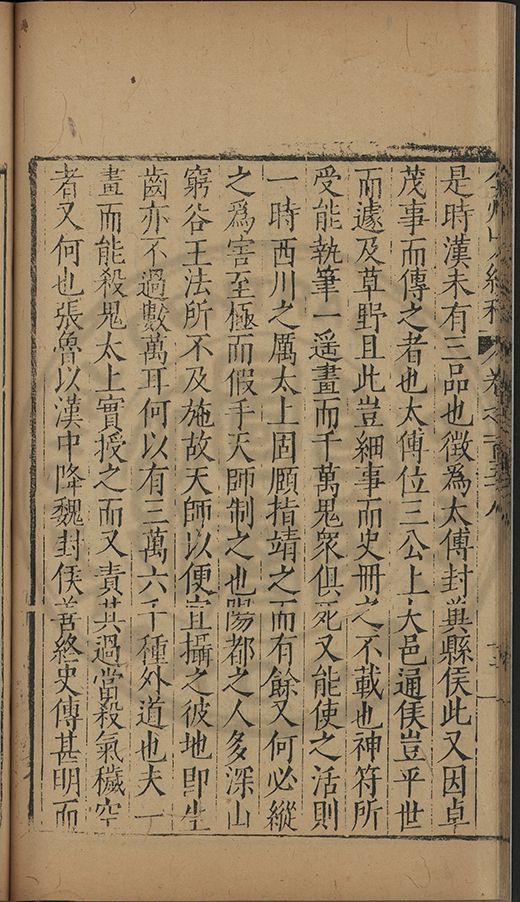 弇州山人續稿 卷之一百五十八
是時漢未有三品也徵為太傅封冀縣侯此又因卓
茂事而傳之者也太傅位三公上大邑通侯豈平世
而遽及草野且此豈細事而史冊之不載也神符所
受能執筆一遥畫而千萬鬼衆俱死又能使之活則
一時西川之厲太上固頤指靖之而有餘又何必縱
之爲害至極而假手天師制之也陽都之人多深山
窮谷王法所不及施故天師以便宜攝之彼地即生
齒亦不過數萬耳何以有三萬六千種外道也夫一
畫而能殺鬼太上實授之而又責其過當殺氣穢空
者又何也張魯以漢中降魏封侯善終史傳甚明而